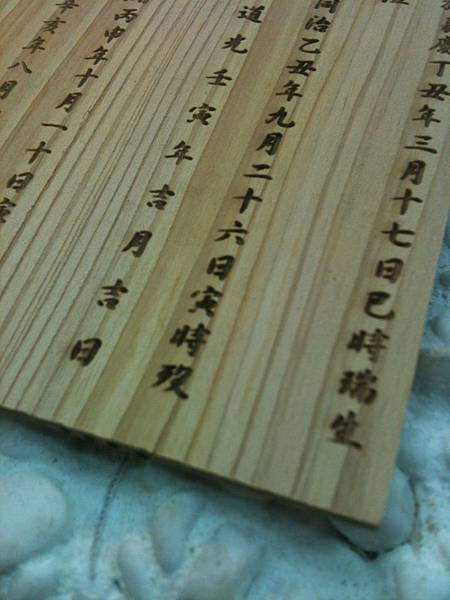 嘉慶丁丑年三月十七日巳時瑞生
同治乙丑年九月二十六日寅時歿
道光壬寅年吉月吉日
丙申年十月一十日
辛亥年八月